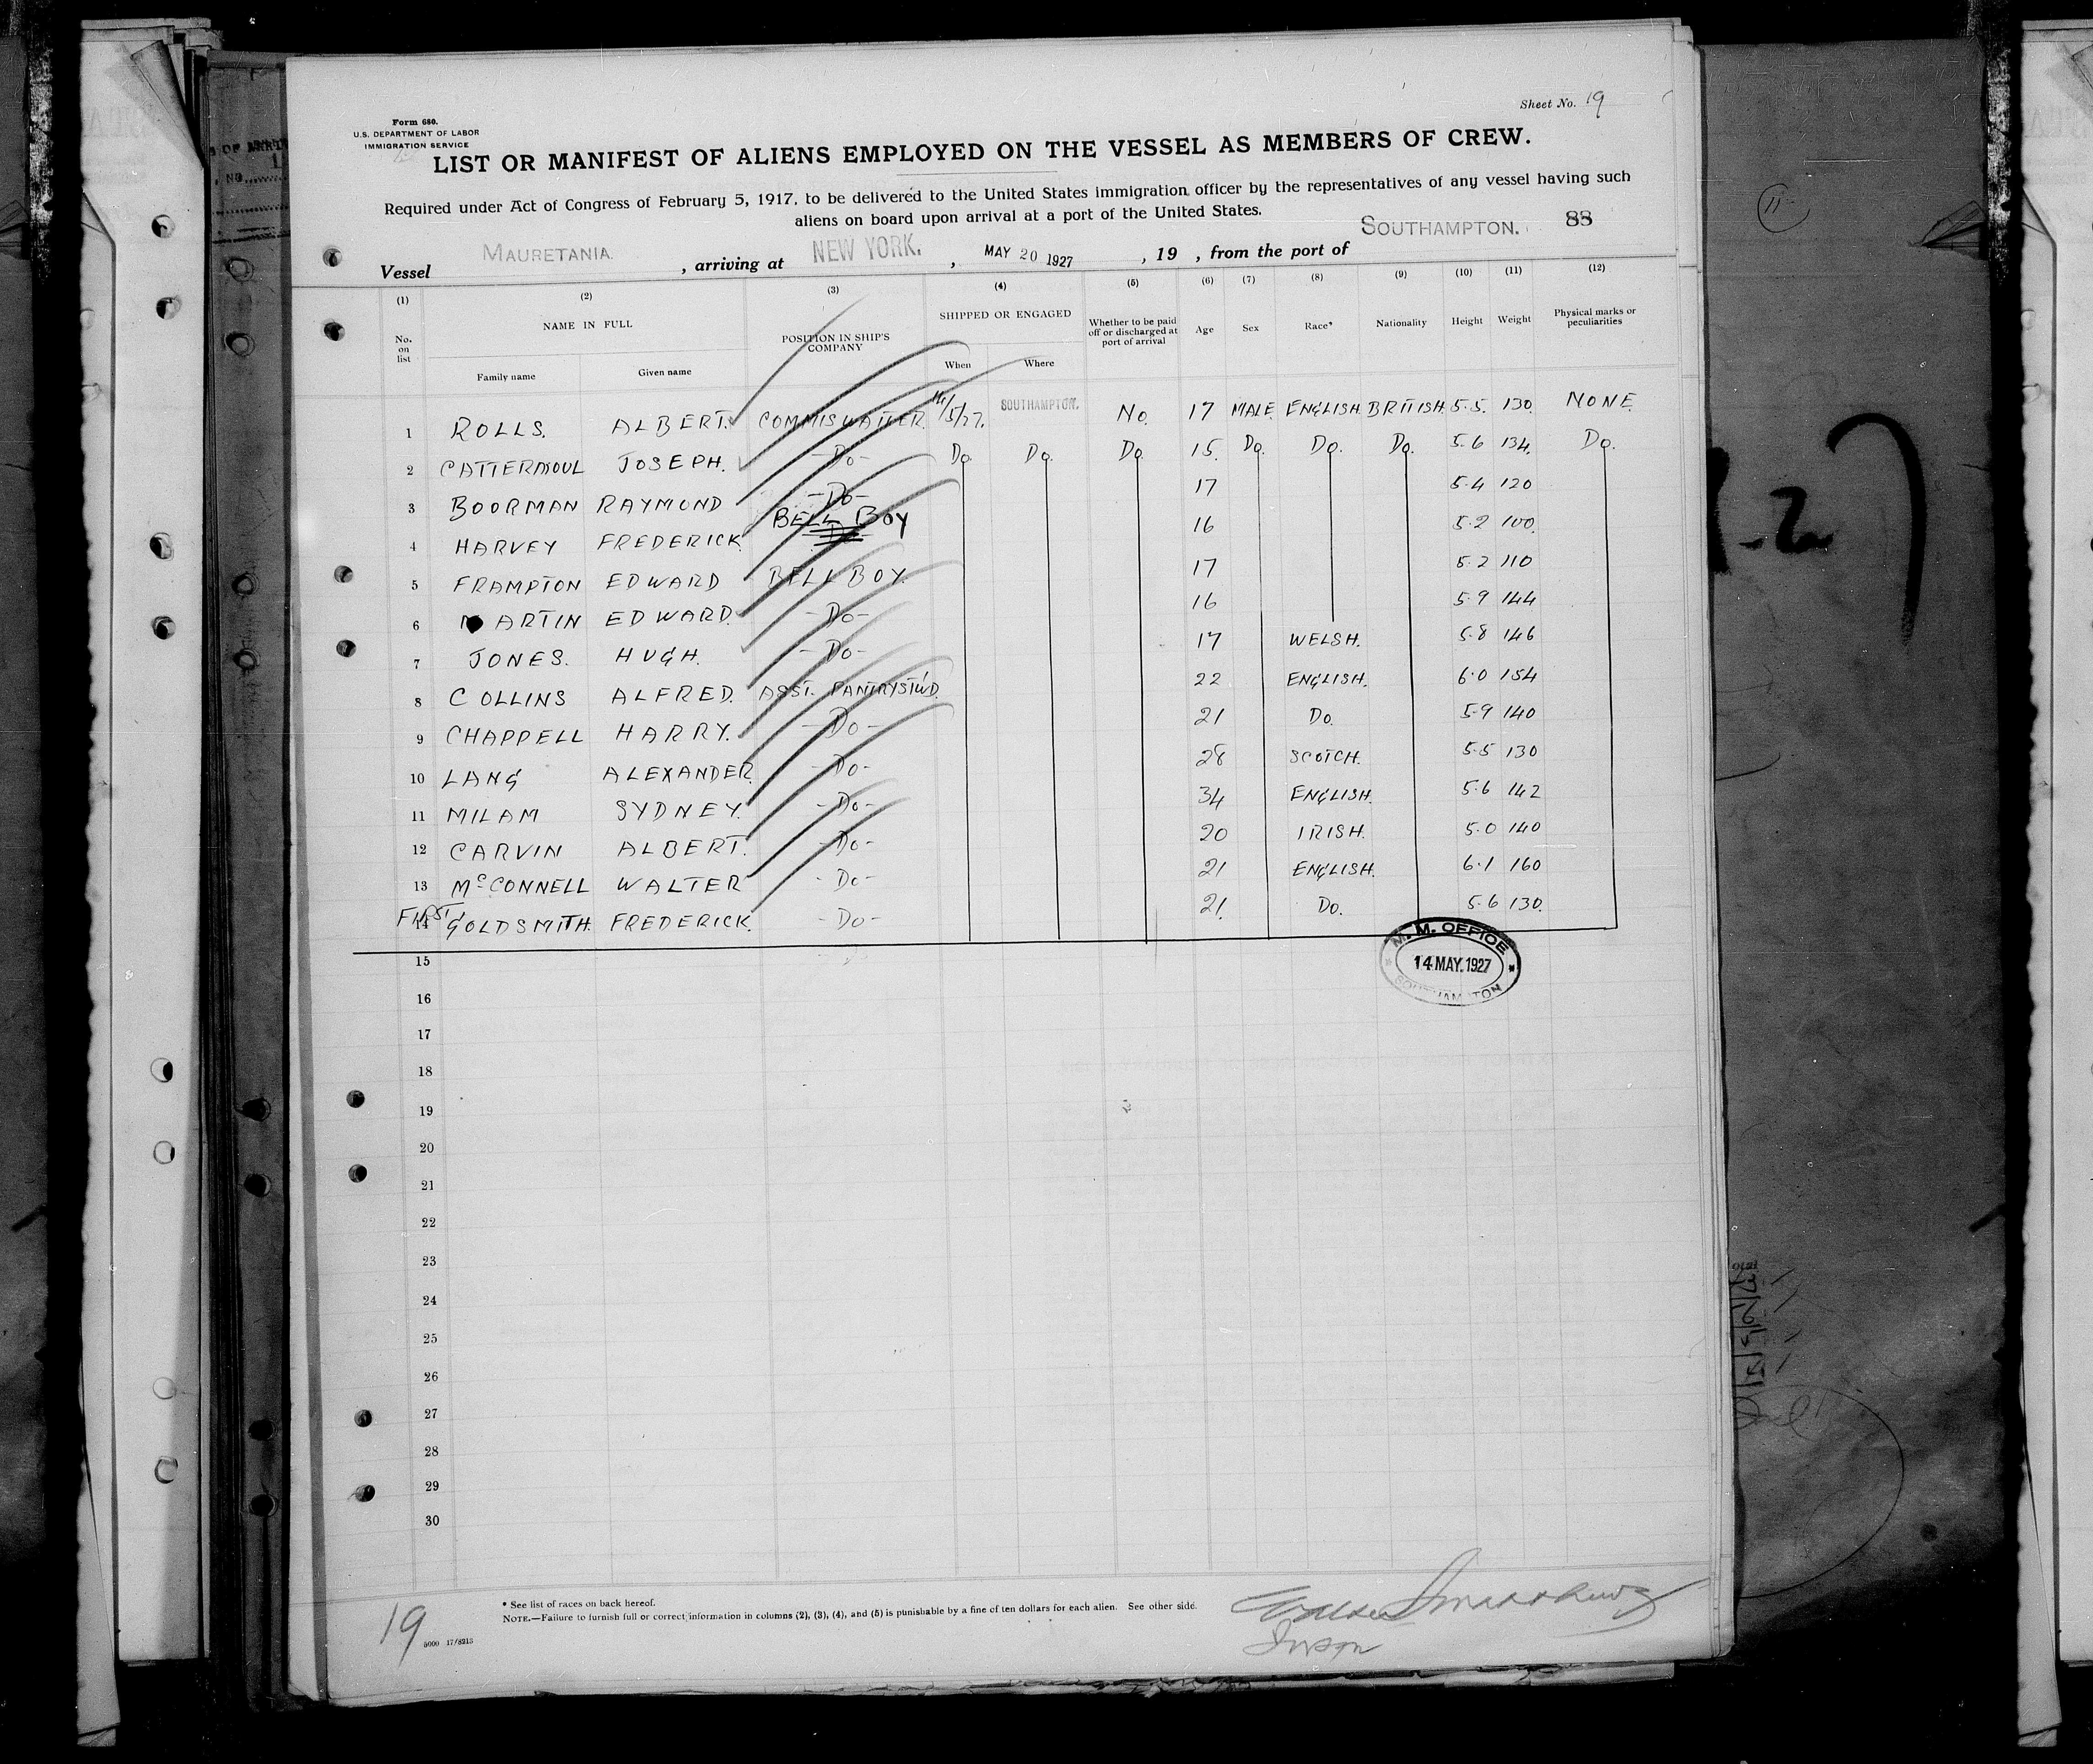 Sheet No. 19
Form 680.
U.S. DEPARTMENT OF LABOR
IMMIGRATION SERVICE
LIST OR MANIFEST OF ALIENS EMPLOYED ON THE VESSEL AS MEMBERS OF CREW.
Required under Act of Congress of February 5, 1917, to be delivered to the United States immigration officer by the representatives of any vessel having such
aliens on board upon arrival at a port of the United States.
88
Vessel MAURETANIA. , arriving at NEW YORK. , MAY 20 1927 , 19 , from the port of SOUTHAMPTON.
(1) (2) (3) (4) (5) (6) (7) (8) (9) (10) (11) (12)
No. on list NAME IN FULL POSITION IN SHIP'S COMPANY SHIPPED OR ENGAGED Whether to be paid off or discharged at port of arrival Age Sex Race* Nationality Height Weight Physical marks or peculiarities
Family name Given name When Where
1 ROLLS. ALBERT. COMMIS WAITER. 14/5/27. SOUTHAMPTON. No. 17 MALE. ENGLISH. BRITISH. 5.5. 130. NONE.
2 CATTERMOUL JOSEPH. -Do- Do. Do. Do. 15. Do. Do. Do. 5.6 134. Do.
3 BOORMAN RAYMOND -Do- 17 5.4 120
4 HARVEY FREDERICK. BELL BOY 16 5.2 100.
5 FRAMPTON EDWARD BELL BOY. 17 5.2 110
6 MARTIN EDWARD. -Do- 16 5.9 144
7 JONES. HUGH. -Do- 17 WELSH. 5.8 146
8 COLLINS ALFRED. ASST. PANTRYST'WD. 22 ENGLISH. 6.0 154
9 CHAPPELL HARRY. -Do- 21 Do. 5.9 140
10 LANG ALEXANDER. -Do- 28 SCOTCH. 5.5 130
11 MILAM SYDNEY. -Do- 34 ENGLISH. 5.6 142
12 CARVIN ALBERT. -Do- 20 IRISH. 5.0 140
13 McCONNELL WALTER -Do- 21 ENGLISH. 6.1 160
FIRST
14 GOLDSMITH. FREDERICK. -Do- 21. Do. 5.6 130.
M. M. OFFICE
14 MAY. 1927
SOUTHAMPTON
15
16
17
18
19
20
21
22
23
24
25
26
27
28
29
30
* See list of races on back hereof.
NOTE.—Failure to furnish full or correct information in columns (2), (3), (4), and (5) is punishable by a fine of ten dollars for each alien. See other side.
19
5000 17/8213